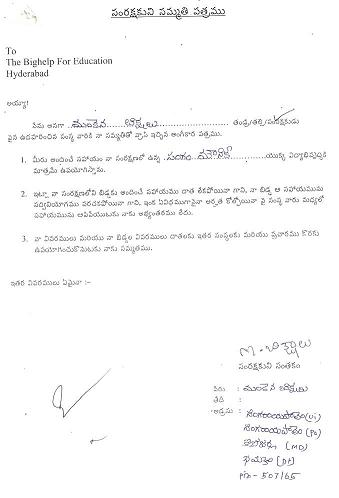 సంరక్షకుని సమ్మతి పత్రము
To
The Bighelp For Education
Hyderabad
అయ్యా!
నేను అనగా ముండెన బిక్షాలు తండ్రి/తల్లి/సంరక్షకుడు
పైన ఉదహరించిన సంస్థ వారికి నా సమ్మతితో వ్రాసి ఇచ్చిన అంగీకార పత్రము.
1. మీరు అందించే సహాయం నా సంరక్షణలో ఉన్న యొక్క విద్యాభివృద్ధికి
మాత్రమే ఉపయోగిస్తాను.
2. ఇట్లా, నా సంరక్షణలోని బిడ్డకు అందించే సహాయము దాత లేకపోయినా గాని, నా బిడ్డ ఆ సహాయమును
సద్వినియోగము పరచకపోయినా గాని, ఇంక ఏవిధముగానైనా అర్హత కోల్పోయినా పై సంస్థ వారు మధ్యలో
సహాయమును ఆపివేయుటకు నాకు అభ్యంతరము లేదు.
3. నా వివరములు మరియు నా బిడ్డల వివరములు దాతలకు ఇతర సంస్థలకు మరియు ప్రచారము కొరకు
ఉపయోగించుకొనుటకు నాకు సమ్మతము.
ఇతర వివరములు ఏమైనా :-
M. బిక్షాలు
సంరక్షకుని సంతకం
పేరు : ముండెన బిక్షాలు
తేది :
అడ్రసు : (Vi)
(Po)
(MD)
(Dt)
Pin - 507165